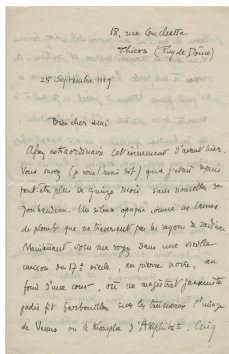 18, rue Conchette
Thiers (Puy de Dôme)
25 Septembre 1929
Bien cher ami
extraordinaire cet événement d'avant-hier.
Vous savez (je vous l'avais dit) que j'étais depuis
peut-être plus de quinze mois sans nouvelles de
Jouhandeau. Un silence opaque, comme ces lames
de plomb que ne traversent pas les rayons de
Maintenant vous me voyez dans une vieille
maison du 17e siècle, en pierre noire, au
fond d'une cour, où un magistrat
jadis fit barbouiller sur les trumeaux l'image
de Vénus ou le triomphe d'Amphitrite. Cinq